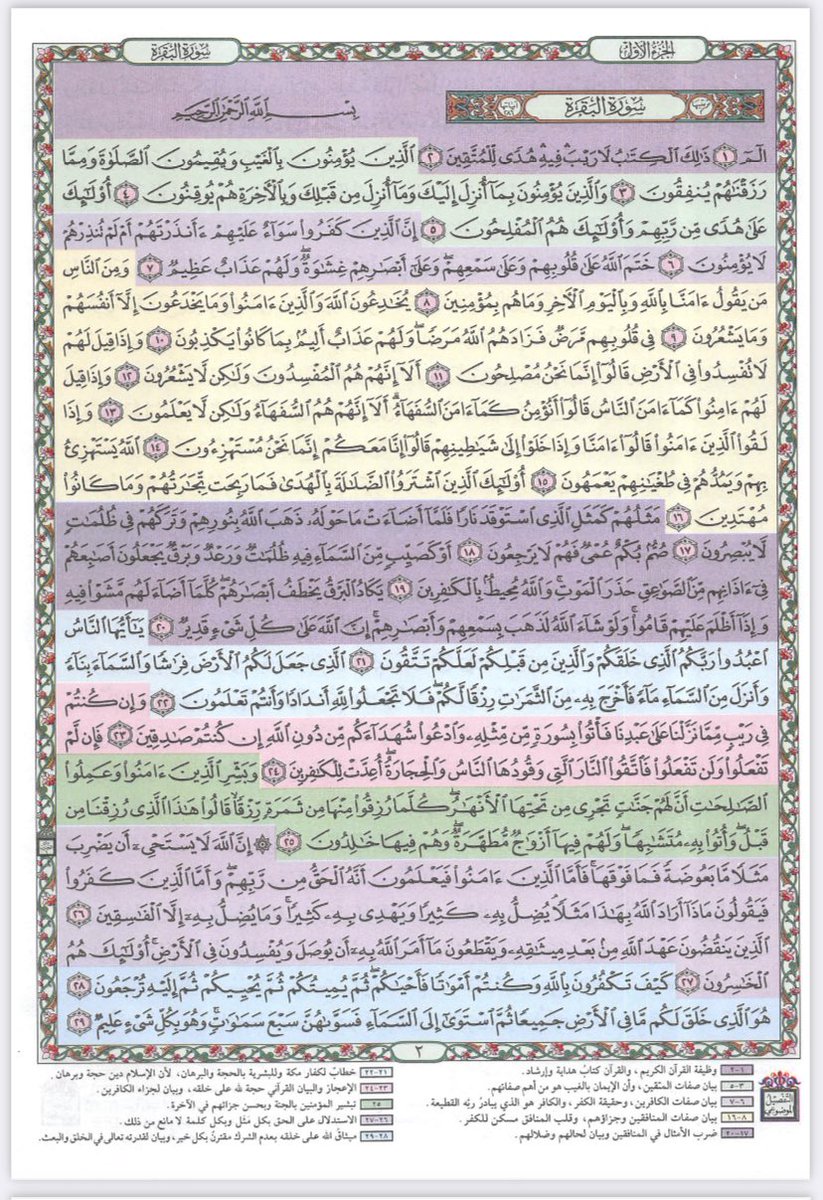 الجزء الأول
سورة البقرة
سورة البقرة
بِسْمِ ٱللَّهِ ٱلرَّحْمَٰنِ ٱلرَّحِيمِ
الٓمٓ ١ ذَٰلِكَ ٱلْكِتَٰبُ لَا رَيْبَ ۛ فِيهِ ۛ هُدًى لِّلْمُتَّقِينَ ٢ ٱلَّذِينَ يُؤْمِنُونَ بِٱلْغَيْبِ وَيُقِيمُونَ ٱلصَّلَوٰةَ وَمِمَّا
رَزَقْنَٰهُمْ يُنفِقُونَ ٣ وَٱلَّذِينَ يُؤْمِنُونَ بِمَآ أُنزِلَ إِلَيْكَ وَمَآ أُنزِلَ مِن قَبْلِكَ وَبِٱلْءَاخِرَةِ هُمْ يُوقِنُونَ ٤ أُو۟لَٰٓئِكَ
عَلَىٰ هُدًى مِّن رَّبِّهِمْ وَأُو۟لَٰٓئِكَ هُمُ ٱلْمُفْلِحُونَ ٥ إِنَّ ٱلَّذِينَ كَفَرُوا۟ سَوَآءٌ عَلَيْهِمْ ءَأَنذَرْتَهُمْ أَمْ لَمْ تُنذِرْهُمْ
لَا يُؤْمِنُونَ ٦ خَتَمَ ٱللَّهُ عَلَىٰ قُلُوبِهِمْ وَعَلَىٰ سَمْعِهِمْ ۖ وَعَلَىٰٓ أَبْصَٰرِهِمْ غِشَٰوَةٌ ۖ وَلَهُمْ عَذَابٌ عَظِيمٌ ٧ وَمِنَ ٱلنَّاسِ
مَن يَقُولُ ءَامَنَّا بِٱللَّهِ وَبِٱلْيَوْمِ ٱلْءَاخِرِ وَمَا هُم بِمُؤْمِنِينَ ٨ يُخَٰدِعُونَ ٱللَّهَ وَٱلَّذِينَ ءَامَنُوا۟ وَمَا يَخْدَعُونَ إِلَّآ أَنفُسَهُمْ
وَمَا يَشْعُرُونَ ٩ فِى قُلُوبِهِم مَّرَضٌ فَزَادَهُمُ ٱللَّهُ مَرَضًا ۖ وَلَهُمْ عَذَابٌ أَلِيمٌۢ بِمَا كَانُوا۟ يَكْذِبُونَ ١٠ وَإِذَا قِيلَ لَهُمْ
لَا تُفْسِدُوا۟ فِى ٱلْأَرْضِ قَالُوٓا۟ إِنَّمَا نَحْنُ مُصْلِحُونَ ١١ أَلَآ إِنَّهُمْ هُمُ ٱلْمُفْسِدُونَ وَلَٰكِن لَّا يَشْعُرُونَ ١٢ وَإِذَا قِيلَ
لَهُمْ ءَامِنُوا۟ كَمَآ ءَامَنَ ٱلنَّاسُ قَالُوٓا۟ أَنُؤْمِنُ كَمَآ ءَامَنَ ٱلسُّفَهَآءُ ۗ أَلَآ إِنَّهُمْ هُمُ ٱلسُّفَهَآءُ وَلَٰكِن لَّا يَعْلَمُونَ ١٣ وَإِذَا
لَقُوا۟ ٱلَّذِينَ ءَامَنُوا۟ قَالُوٓا۟ ءَامَنَّا وَإِذَا خَلَوْا۟ إِلَىٰ شَيَٰطِينِهِمْ قَالُوٓا۟ إِنَّا مَعَكُمْ إِنَّمَا نَحْنُ مُسْتَهْزِءُونَ ١٤ ٱللَّهُ يَسْتَهْزِئُ
بِهِمْ وَيَمُدُّهُمْ فِى طُغْيَٰنِهِمْ يَعْمَهُونَ ١٥ أُو۟لَٰٓئِكَ ٱلَّذِينَ ٱشْتَرَوُا۟ ٱلضَّلَٰلَةَ بِٱلْهُدَىٰ فَمَا رَبِحَت تِّجَٰرَتُهُمْ وَمَا كَانُوا۟
مُهْتَدِينَ ١٦ مَثَلُهُمْ كَمَثَلِ ٱلَّذِى ٱسْتَوْقَدَ نَارًا فَلَمَّآ أَضَآءَتْ مَا حَوْلَهُۥ ذَهَبَ ٱللَّهُ بِنُورِهِمْ وَتَرَكَهُمْ فِى ظُلُمَٰتٍ
لَّا يُبْصِرُونَ ١٧ صُمٌّۢ بُكْمٌ عُمْىٌ فَهُمْ لَا يَرْجِعُونَ ١٨ أَوْ كَصَيِّبٍ مِّنَ ٱلسَّمَآءِ فِيهِ ظُلُمَٰتٌ وَرَعْدٌ وَبَرْقٌ يَجْعَلُونَ أَصَٰبِعَهُمْ
فِىٓ ءَاذَانِهِم مِّنَ ٱلصَّوَٰعِقِ حَذَرَ ٱلْمَوْتِ ۚ وَٱللَّهُ مُحِيطٌۢ بِٱلْكَٰفِرِينَ ١٩ يَكَادُ ٱلْبَرْقُ يَخْطَفُ أَبْصَٰرَهُمْ ۖ كُلَّمَآ أَضَآءَ لَهُم مَّشَوْا۟ فِيهِ
وَإِذَآ أَظْلَمَ عَلَيْهِمْ قَامُوا۟ ۚ وَلَوْ شَآءَ ٱللَّهُ لَذَهَبَ بِسَمْعِهِمْ وَأَبْصَٰرِهِمْ ۚ إِنَّ ٱللَّهَ عَلَىٰ كُلِّ شَىْءٍ قَدِيرٌ ٢٠ يَٰٓأَيُّهَا ٱلنَّاسُ
ٱعْبُدُوا۟ رَبَّكُمُ ٱلَّذِى خَلَقَكُمْ وَٱلَّذِينَ مِن قَبْلِكُمْ لَعَلَّكُمْ تَتَّقُونَ ٢١ ٱلَّذِى جَعَلَ لَكُمُ ٱلْأَرْضَ فِرَٰشًا وَٱلسَّمَآءَ بِنَآءً
وَأَنزَلَ مِنَ ٱلسَّمَآءِ مَآءً فَأَخْرَجَ بِهِۦ مِنَ ٱلثَّمَرَٰتِ رِزْقًا لَّكُمْ ۖ فَلَا تَجْعَلُوا۟ لِلَّهِ أَندَادًا وَأَنتُمْ تَعْلَمُونَ ٢٢ وَإِن كُنتُمْ
فِى رَيْبٍ مِّمَّا نَزَّلْنَا عَلَىٰ عَبْدِنَا فَأْتُوا۟ بِسُورَةٍ مِّن مِّثْلِهِۦ وَٱدْعُوا۟ شُهَدَآءَكُم مِّن دُونِ ٱللَّهِ إِن كُنتُمْ صَٰدِقِينَ ٢٣ فَإِن لَّمْ
تَفْعَلُوا۟ وَلَن تَفْعَلُوا۟ فَٱتَّقُوا۟ ٱلنَّارَ ٱلَّتِى وَقُودُهَا ٱلنَّاسُ وَٱلْحِجَارَةُ ۖ أُعِدَّتْ لِلْكَٰفِرِينَ ٢٤ وَبَشِّرِ ٱلَّذِينَ ءَامَنُوا۟ وَعَمِلُوا۟
ٱلصَّٰلِحَٰتِ أَنَّ لَهُمْ جَنَّٰتٍ تَجْرِى مِن تَحْتِهَا ٱلْأَنْهَٰرُ ۖ كُلَّمَا رُزِقُوا۟ مِنْهَا مِن ثَمَرَةٍ رِّزْقًا ۙ قَالُوا۟ هَٰذَا ٱلَّذِى رُزِقْنَا مِن
قَبْلُ ۖ وَأُتُوا۟ بِهِۦ مُتَشَٰبِهًا ۖ وَلَهُمْ فِيهَآ أَزْوَٰجٌ مُّطَهَّرَةٌ ۖ وَهُمْ فِيهَا خَٰلِدُونَ ٢٥ ۞ إِنَّ ٱللَّهَ لَا يَسْتَحْىِۦٓ أَن يَضْرِبَ
مَثَلًا مَّا بَعُوضَةً فَمَا فَوْقَهَا ۚ فَأَمَّا ٱلَّذِينَ ءَامَنُوا۟ فَيَعْلَمُونَ أَنَّهُ ٱلْحَقُّ مِن رَّبِّهِمْ ۖ وَأَمَّا ٱلَّذِينَ كَفَرُوا۟
فَيَقُولُونَ مَاذَآ أَرَادَ ٱللَّهُ بِهَٰذَا مَثَلًا ۘ يُضِلُّ بِهِۦ كَثِيرًا وَيَهْدِى بِهِۦ كَثِيرًا ۚ وَمَا يُضِلُّ بِهِۦٓ إِلَّا ٱلْفَٰسِقِينَ ٢٦
ٱلَّذِينَ يَنقُضُونَ عَهْدَ ٱللَّهِ مِنۢ بَعْدِ مِيثَٰقِهِۦ وَيَقْطَعُونَ مَآ أَمَرَ ٱللَّهُ بِهِۦٓ أَن يُوصَلَ وَيُفْسِدُونَ فِى ٱلْأَرْضِ ۚ أُو۟لَٰٓئِكَ هُمُ
ٱلْخَٰسِرُونَ ٢٧ كَيْفَ تَكْفُرُونَ بِٱللَّهِ وَكُنتُمْ أَمْوَٰتًا فَأَحْيَٰكُمْ ۖ ثُمَّ يُمِيتُكُمْ ثُمَّ يُحْيِيكُمْ ثُمَّ إِلَيْهِ تُرْجَعُونَ ٢٨
هُوَ ٱلَّذِى خَلَقَ لَكُم مَّا فِى ٱلْأَرْضِ جَمِيعًا ثُمَّ ٱسْتَوَىٰٓ إِلَى ٱلسَّمَآءِ فَسَوَّىٰهُنَّ سَبْعَ سَمَٰوَٰتٍ ۚ وَهُوَ بِكُلِّ شَىْءٍ عَلِيمٌ ٢٩
٢
التفصيل الموضوعي
١-٢ وظيفة القرآن الكريم، والقرآن كتابُ هداية وإرشاد.
٣-٥ بيان صفات المتقين، وأن الإيمان بالغيب هو من أهم صفاتهم.
٦-٧ بيان صفات الكافرين، وحقيقة الكفر، والكافر هو الذي يبادرُ ربَّه القطيعة.
٨-١٦ بيان صفات المنافقين وجزاؤهم، وقلب المنافق مسكن للكفر.
١٧-٢٠ ضرب الأمثال في المنافقين وبيان لحالهم وضلالهم.
٢١-٢٢ خطابٌ لكفار مكة وللبشرية بالحجة والبرهان، لأن الإسلام دين حجة وبرهان.
٢٣-٢٤ الإعجاز والبيان القرآني حجة لله على خلقه، وبيان لجزاء الكافرين.
٢٥ تبشير المؤمنين بالجنة وبحسن جزائهم في الآخرة.
٢٦-٢٧ الاستدلال على الحق بكل مَثل وبكل كلمة لا مانع من ذلك.
٢٨-٢٩ ميثاقُ الله على خلقه بعدم الشرك مقترنٌ بكل خير، وبيان لقدرته تعالى في الخلق والبعث.